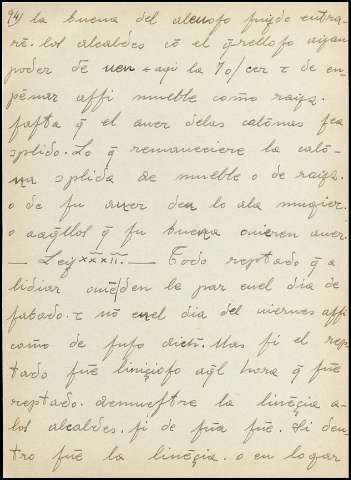 94) la buena del alevofo fuydo entra-
re. los alcaldes cō el q̄rellofo ayan
poder de ven + agi la %/cer τ de en-
pēnar affi mueble como rayz.
fafta q̄ el aver delas calōnas fea
oplido. Lo q̄ remaneciere la calō-
na oplida de mueble o de rayz.
o de fu aver den lo ala mugier.
o aaq̄llos q̄ fu buena ovieren aver.
— Ley xxxii. — Todo reptado q̄ a
lidiar oviē den la por en el dia de
fabado. τ no enel dia del viernes affi
como de fufo dicħ. Mas fi el rep-
tado fuē linigiofo aq̄l hora q̄ fuē
reptado. demueftre la linēgia a-
los alcaldes. fi de fūa fuē. Si den-
tro fuē la linēgia. o en logar